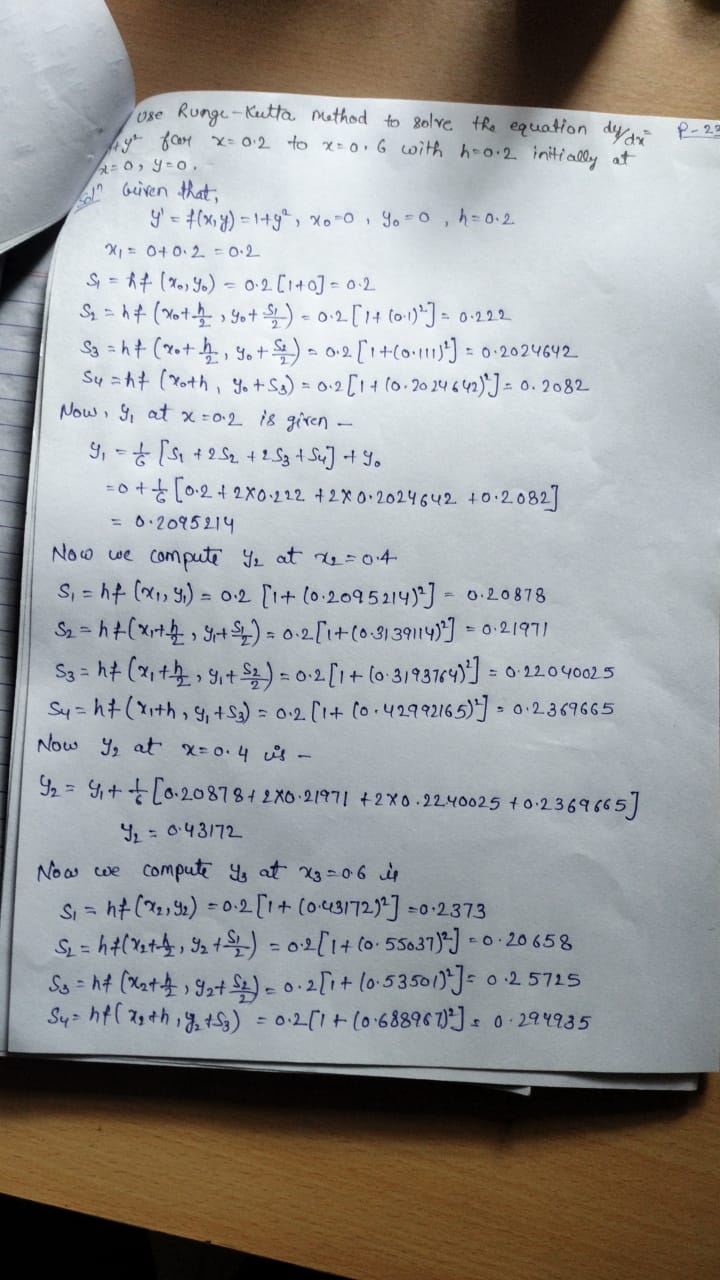 Use Runge-Kutta method to solve the equation dy/dx = P-23
1+y² for x=0.2 to x=0.6 with h=0.2 initially at
x=0, y=0.
Solⁿ Given that,
y' = f(x,y) = 1+y², x₀=0, y₀=0, h=0.2
x₁ = 0+0.2 = 0.2
S₁ = hf (x₀, y₀) = 0.2 [1+0] = 0.2
S₂ = hf (x₀+h/2, y₀+S₁/2) = 0.2 [1+ (0.1)²] = 0.222
S₃ = hf (x₀+h/2, y₀+S₂/2) = 0.2 [1+(0.111)²] = 0.2024642
S₄ = hf (x₀+h, y₀+S₃) = 0.2 [1+ (0.2024642)²] = 0.2082
Now, y₁ at x=0.2 is given —
y₁ = 1/6 [S₁ + 2S₂ + 2S₃ + S₄] + y₀
= 0 + 1/6 [0.2 + 2×0.222 + 2×0.2024642 + 0.2082]
= 0.2095214
Now we compute y₂ at x₂=0.4
S₁ = hf (x₁, y₁) = 0.2 [1+ (0.2095214)²] = 0.20878
S₂ = hf(x₁+h/2, y₁+S₁/2) = 0.2[1+(0.3139114)²] = 0.21971
S₃ = hf (x₁+h/2, y₁+S₂/2) = 0.2[1+ (0.3193764)²] = 0.22040025
S₄ = hf (x₁+h, y₁+S₃) = 0.2 [1+ (0.42992165)²] = 0.2369665
Now y₂ at x=0.4 is —
y₂ = y₁ + 1/6 [0.20878 + 2×0.21971 + 2×0.2240025 + 0.2369665]
y₂ = 0.43172
Now we compute y₃ at x₃=0.6 is
S₁ = hf (x₂, y₂) = 0.2 [1+ (0.43172)²] = 0.2373
S₂ = hf(x₂+h/2, y₂+S₁/2) = 0.2[1+(0.55037)²] = 0.20658
S₃ = hf (x₂+h/2, y₂+S₂/2) = 0.2[1+ (0.53501)²] = 0.25725
S₄ = hf( x₂+h, y₂+S₃) = 0.2[1+ (0.688967)²] = 0.294935